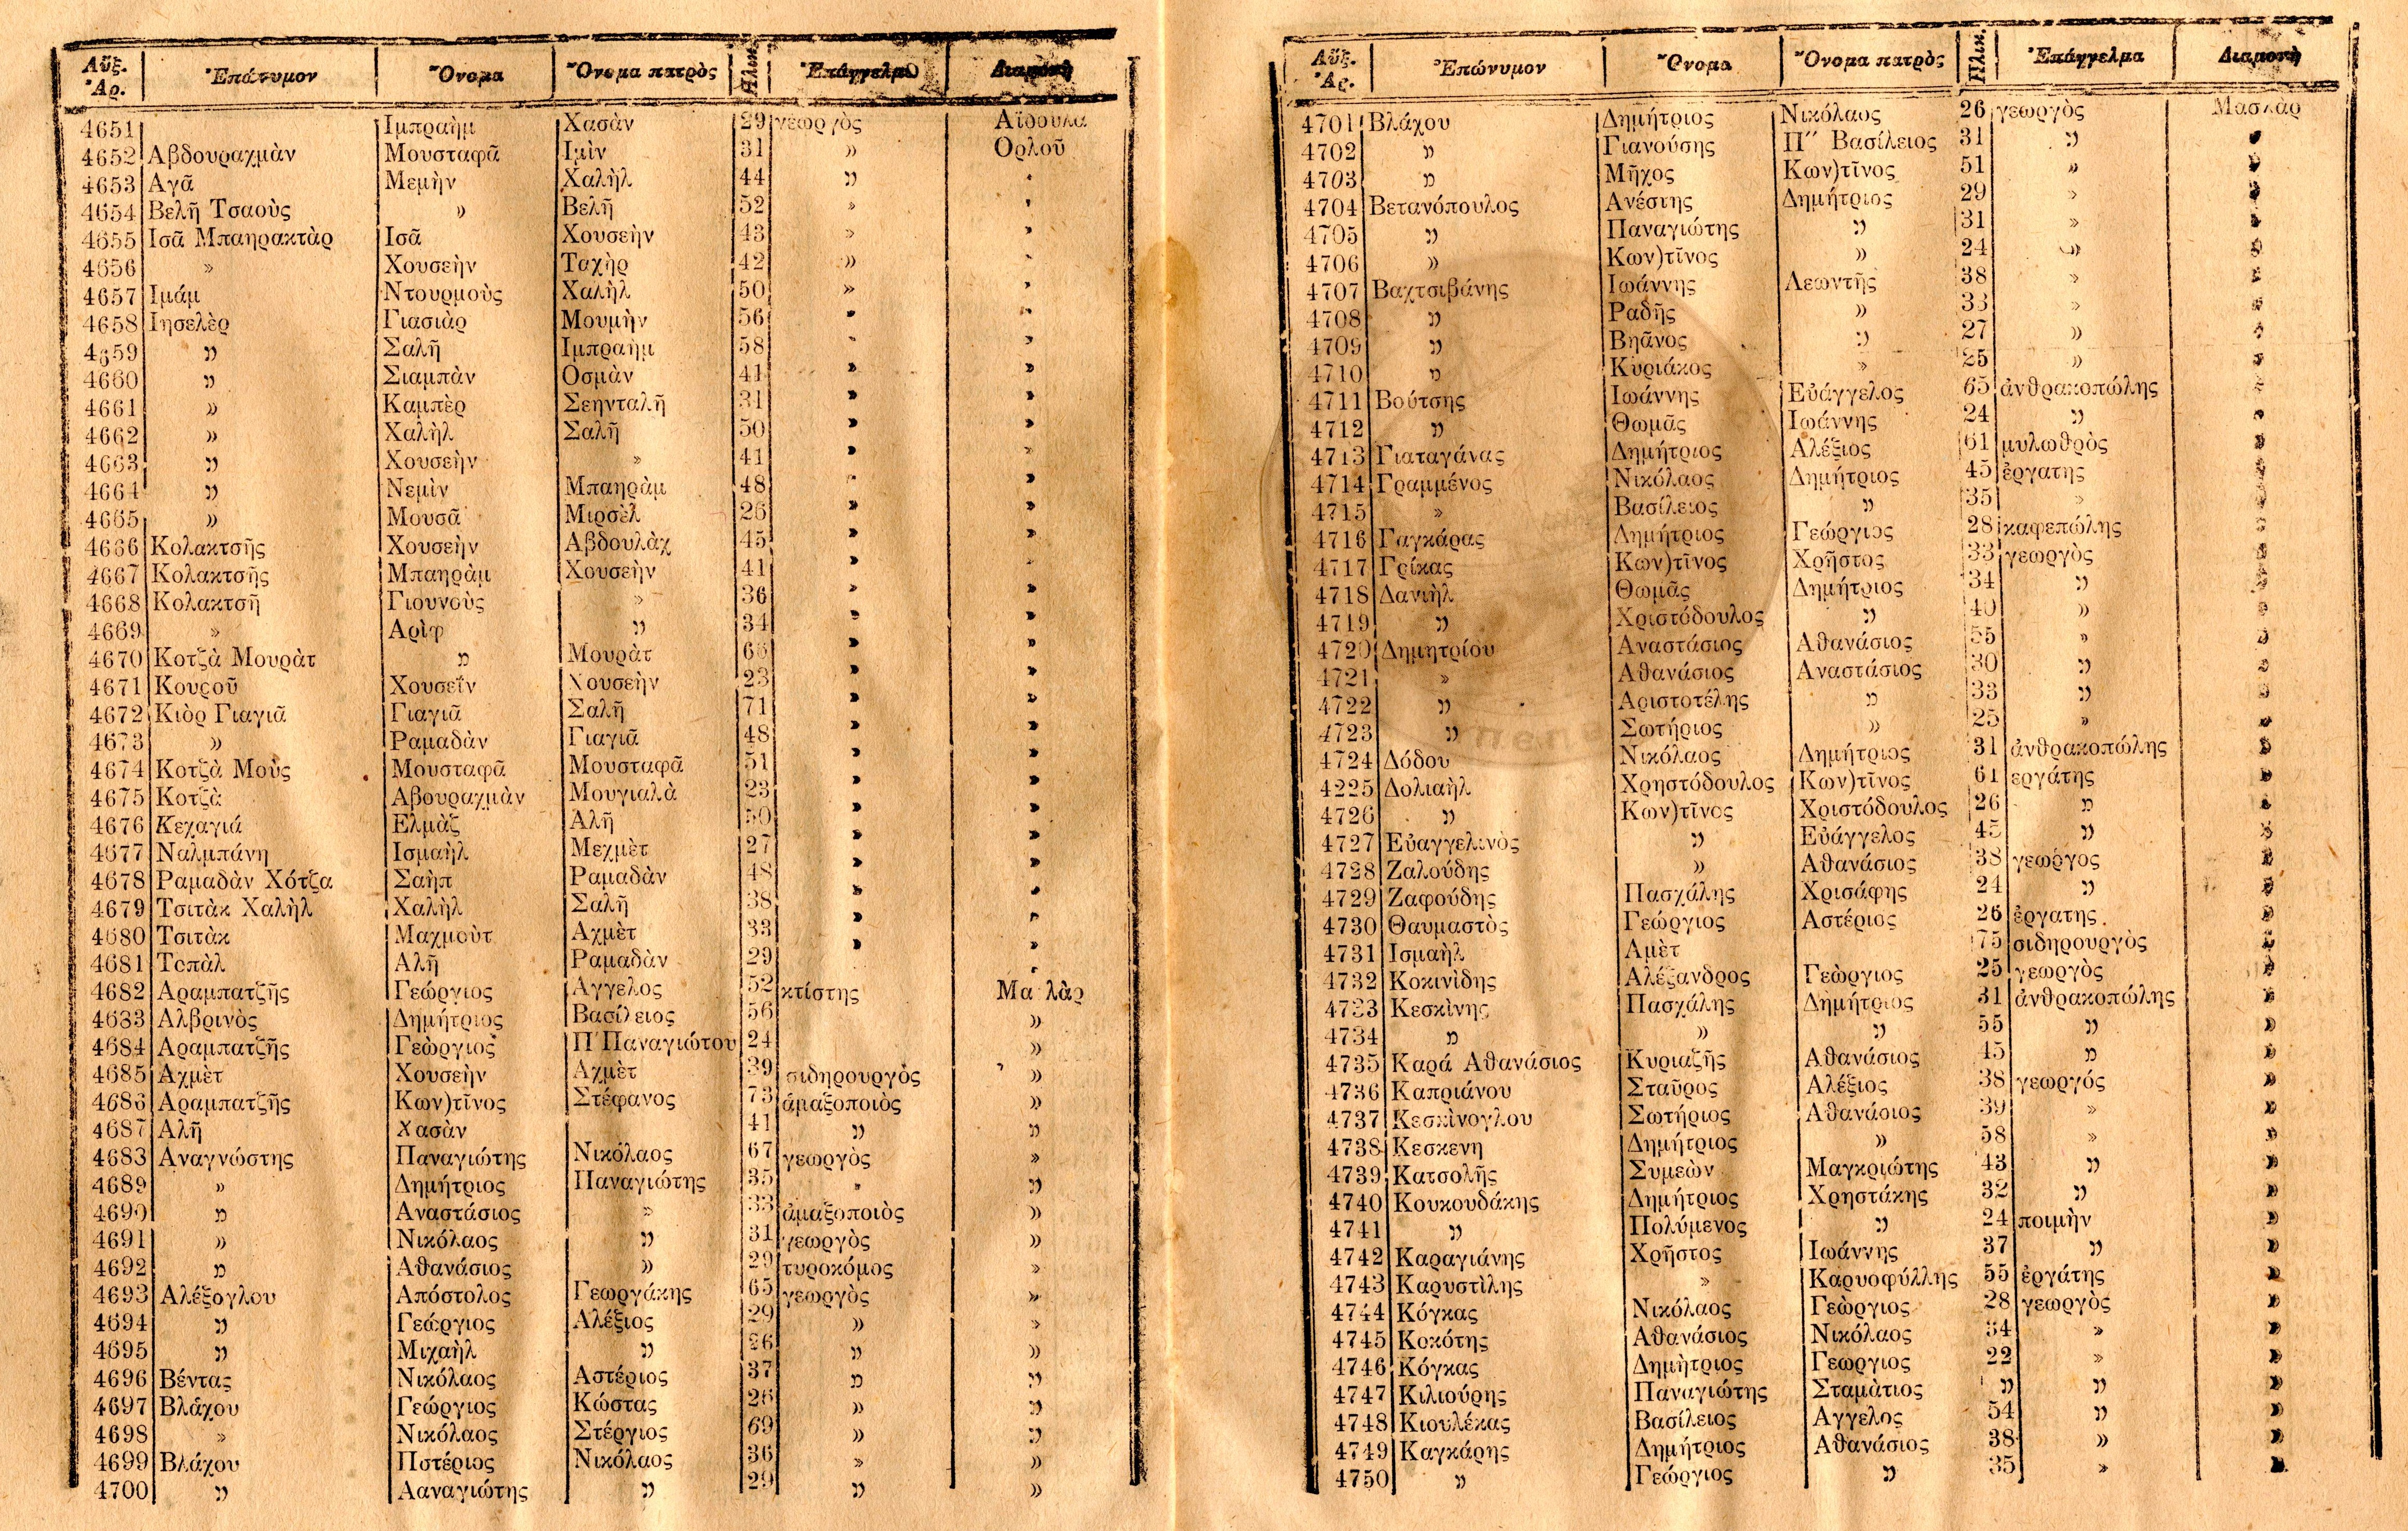 Αὔξ. Ἀρ. Ἐπώνυμον Ὄνομα Ὄνομα πατρὸς Ἡλικ. Ἐπάγγελμα Διαμονὴ
4651 Ιμπραὴμ Χασὰν 29 γεωργὸς Αϊδουλα
4652 Αβδουραχμὰν Μουσταφᾶ Ιμὶν 31 » Ορλοῦ
4653 Αγᾶ Μεμὴν Χαλὴλ 44 » »
4654 Βελῆ Τσαοὺς » Βελῆ 52 » »
4655 Ισᾶ Μπαηρακτὰρ Ισᾶ Χουσεὴν 43 » »
4656 » Χουσεὴν Ταχὴρ 42 » »
4657 Ιμάμ Ντουρμοὺς Χαλὴλ 50 » »
4658 Ιησελὲρ Γιασιὰρ Μουμὴν 56 » »
4659 » Σαλῆ Ιμπραὴμ 58 » »
4660 » Σιαμπὰν Οσμὰν 41 » »
4661 » Καμπὲρ Σεηνταλῆ 31 » »
4662 » Χαλὴλ Σαλῆ 50 » »
4663 » Χουσεὴν » 41 » »
4664 » Νεμὶν Μπαηρὰμ 48 » »
4665 » Μουσᾶ Μιρσὲλ 26 » »
4666 Κολακτσῆς Χουσεὴν Αβδουλὰχ 45 » »
4667 Κολακτσῆς Μπαηρὰμ Χουσεὴν 41 » »
4668 Κολακτσῆ Γιουνοὺς » 36 » »
4669 » Αρὶφ » 34 » »
4670 Κοτζὰ Μουρὰτ » Μουρὰτ 66 » »
4671 Κουροῦ Χουσεῒν Χουσεὴν 23 » »
4672 Κιὸρ Γιαγιᾶ Γιαγιᾶ Σαλῆ 71 » »
4673 » Ραμαδὰν Γιαγιᾶ 48 » »
4674 Κοτζὰ Μοὺς Μουσταφᾶ Μουσταφᾶ 51 » »
4675 Κοτζὰ Αβουραχμὰν Μουγιαλὰ 23 » »
4676 Κεχαγιά Ελμὰζ Αλῆ 50 » »
4677 Ναλμπάνη Ισμαὴλ Μεχμὲτ 27 » »
4678 Ραμαδὰν Χότζα Σαὴπ Ραμαδὰν 48 » »
4679 Τσιτὰκ Χαλὴλ Χαλὴλ Σαλῆ 38 » »
4680 Τσιτὰκ Μαχμοὺτ Αχμὲτ 33 » »
4681 Τοπὰλ Αλῆ Ραμαδὰν 29 »
4682 Αραμπατζῆς Γεώργιος Αγγελος 52 κτίστης Μα λὰρ
4683 Αλβρινὸς Δημήτριος Βασίλειος 56 »
4684 Αραμπατζῆς Γεὼργιος Π΄Παναγιώτου 24 »
4685 Αχμὲτ Χουσεὴν Αχμὲτ 39 σιδηρουργὸς »
4686 Αραμπατζῆς Κων)τῖνος Στέφανος 73 ἁμαξοποιὸς »
4687 Αλῆ Χασὰν 41 » »
4683 Αναγνώστης Παναγιώτης Νικόλαος 67 γεωργὸς »
4689 » Δημήτριος Παναγιώτης 35 » »
4690 » Αναστάσιος » 33 ἁμαξοποιὸς »
4691 » Νικόλαος » 31 γεωργὸς »
4692 » Αθανάσιος » 29 τυροκόμος »
4693 Αλέξογλου Απόστολος Γεωργάκης 65 γεωργὸς »
4694 » Γεώργιος Αλέξιος 29 » »
4695 » Μιχαὴλ » 26 » »
4696 Βέντας Νικόλαος Αστέριος 37 » »
4697 Βλάχου Γεώργιος Κώστας 26 » »
4698 » Νικόλαος Στέργιος 69 » »
4699 Βλάχου Πστέριος Νικόλαος 36 » »
4700 » Ααναγιώτης » 29 » »
Αὔξ. Ἀρ. Ἐπώνυμον Ὄνομα Ὄνομα πατρὸς Ἡλικ. Ἐπάγγελμα Διαμονὴ
4701 Βλάχου Δημήτριος Νικόλαος 26 γεωργὸς Μασλὰρ
4702 » Γιανούσης Π΄΄ Βασίλειος 31 » »
4703 » Μῆχος Κων)τῖνος 51 » »
4704 Βετανόπουλος Ανέστης Δημήτριος 29 » »
4705 » Παναγιώτης » 31 » »
4706 » Κων)τῖνος » 24 » »
4707 Βαχτσιβάνης Ιωάννης Λεωντῆς 38 » »
4708 » Ραδῆς » 33 » »
4709 » Βηᾶνος » 27 » »
4710 » Κυριάκος » 25 » »
4711 Βούτσης Ιωάννης Εὐάγγελος 65 ἀνθρακοπώλης »
4712 » Θωμᾶς Ιωάννης 24 » »
4713 Γιαταγάνας Δημήτριος Αλέξιος 61 μυλωθρὸς »
4714 Γραμμένος Νικόλαος Δημήτριος 45 ἐργατης »
4715 » Βασίλειος » 35 » »
4716 Γαγκάρας Δημήτριος Γεώργιος 28 καφεπώλης »
4717 Γρίκας Κων)τῖνος Χρῆστος 33 γεωργὸς »
4718 Δανιὴλ Θωμᾶς Δημήτριος 34 » »
4719 » Χριστόδουλος » 40 » »
4720 Δημητρίου Αναστάσιος Αθανάσιος 55 » »
4721 » Αθανάσιος Αναστάσιος 30 » »
4722 » Αριστοτέλης » 33 » »
4723 » Σωτήριος » 25 » »
4724 Δόδου Νικόλαος Δημήτριος 31 ἀνθρακοπώλης »
4225 Δολιαὴλ Χρηστόδουλος Κων)τῖνος 61 εργάτης »
4726 » Κων)τῖνος Χριστόδουλος 26 » »
4727 Εὐαγγελινὸς » Εὐάγγελος 45 » »
4728 Ζαλούδης » Αθανάσιος 38 γεωργος »
4729 Ζαφούδης Πασχάλης Χρισάφης 24 » »
4730 Θαυμαστὸς Γεώργιος Αστέριος 26 ἐργατης »
4731 Ισμαὴλ Αμὲτ 75 σιδηρουργὸς »
4732 Κοκινὶδης Αλέξανδρος Γεὼργιος 25 γεωργὸς »
4733 Κεσκὶνης Πασχάλης Δημήτριος 31 ἀνθρακοπώλης »
4734 » » » 55 » »
4735 Καρά Αθανάσιος Κυριαζῆς Αθανάσιος 45 » »
4736 Καπριάνου Σταῦρος Αλέξιος 38 γεωργός »
4737 Κεσκὶνογλου Σωτήριος Αθανάσιος 39 » »
4738 Κεσκενη Δημήτριος » 58 » »
4739 Κατσολῆς Συμεὼν Μαγκριώτης 43 » »
4740 Κουκουδάκης Δημήτριος Χρηστάκης 32 » »
4741 » Πολύμενος » 24 ποιμὴν »
4742 Καραγιάνης Χρῆστος Ιωάννης 37 » »
4743 Καρυστὶλης » Καρυοφύλλης 55 ἐργάτης »
4744 Κόγκας Νικόλαος Γεὼργιος 28 γεωργὸς »
4745 Κοκότης Αθανάσιος Νικόλαος 34 » »
4746 Κόγκας Δημὴτριος Γεωργιος 22 » »
4747 Κιλιούρης Παναγιώτης Σταμὰτιος » » »
4748 Κιουλέκας Βασίλειος Αγγελος 54 » »
4749 Καγκάρης Δημήτριος Αθανάσιος 38 » »
4750 » Γεώργιος » 35 » »